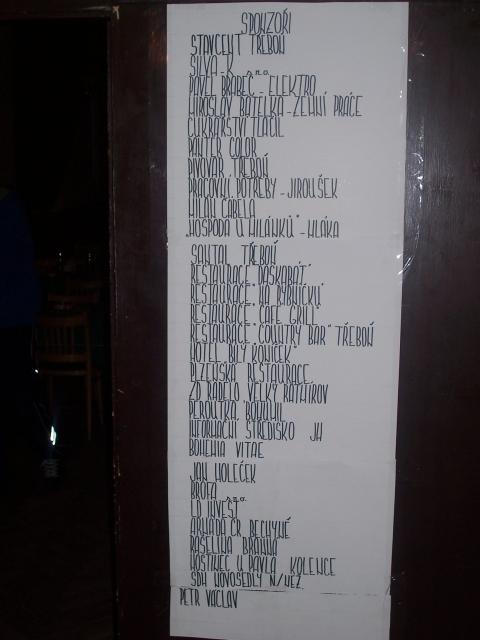 SPONZOŘI
STAVCENT TŘEBOŇ
SILVA - K s.r.o.
PAVEL BRABEC - ELEKTRO
MIROSLAV BAŤELKA - ZEMNÍ PRÁCE
CUKRÁŘSTVÍ TLAČIL
PANTER COLOR
PIVOVAR TŘEBOŇ
PRACOVNÍ POTŘEBY - JIROUŠEK
MILAN CABELA
„HOSPODA U MILÁNKŮ" - MLÁKA
SANTAL TŘEBOŇ
RESTAURACE "DAŠKABÁT"
RESTAURACE "NA RYBNÍČKU"
RESTAURACE "CAFE GRILL"
RESTAURACE "COUNTRY BAR" TŘEBOŇ
HOTEL "BÍLÝ KONÍČEK"
PLZEŇSKÁ RESTAURACE
ZD RADELO VELKÝ RATMÍROV
PEROUTKA BOHUMIL
INFORMAČNÍ STŘEDISKO JH
BOHEMIA VITAE
JAN HOLEČEK
BROFA s.r.o.
LD INVEST
ARMÁDA ČR BECHYNĚ
RAŠELINA BRANNÁ
HOSTINEC U PAVLA KOLENCE
SDH NOVOSEDLY N/NEŽ.
PETR VÁCLAV